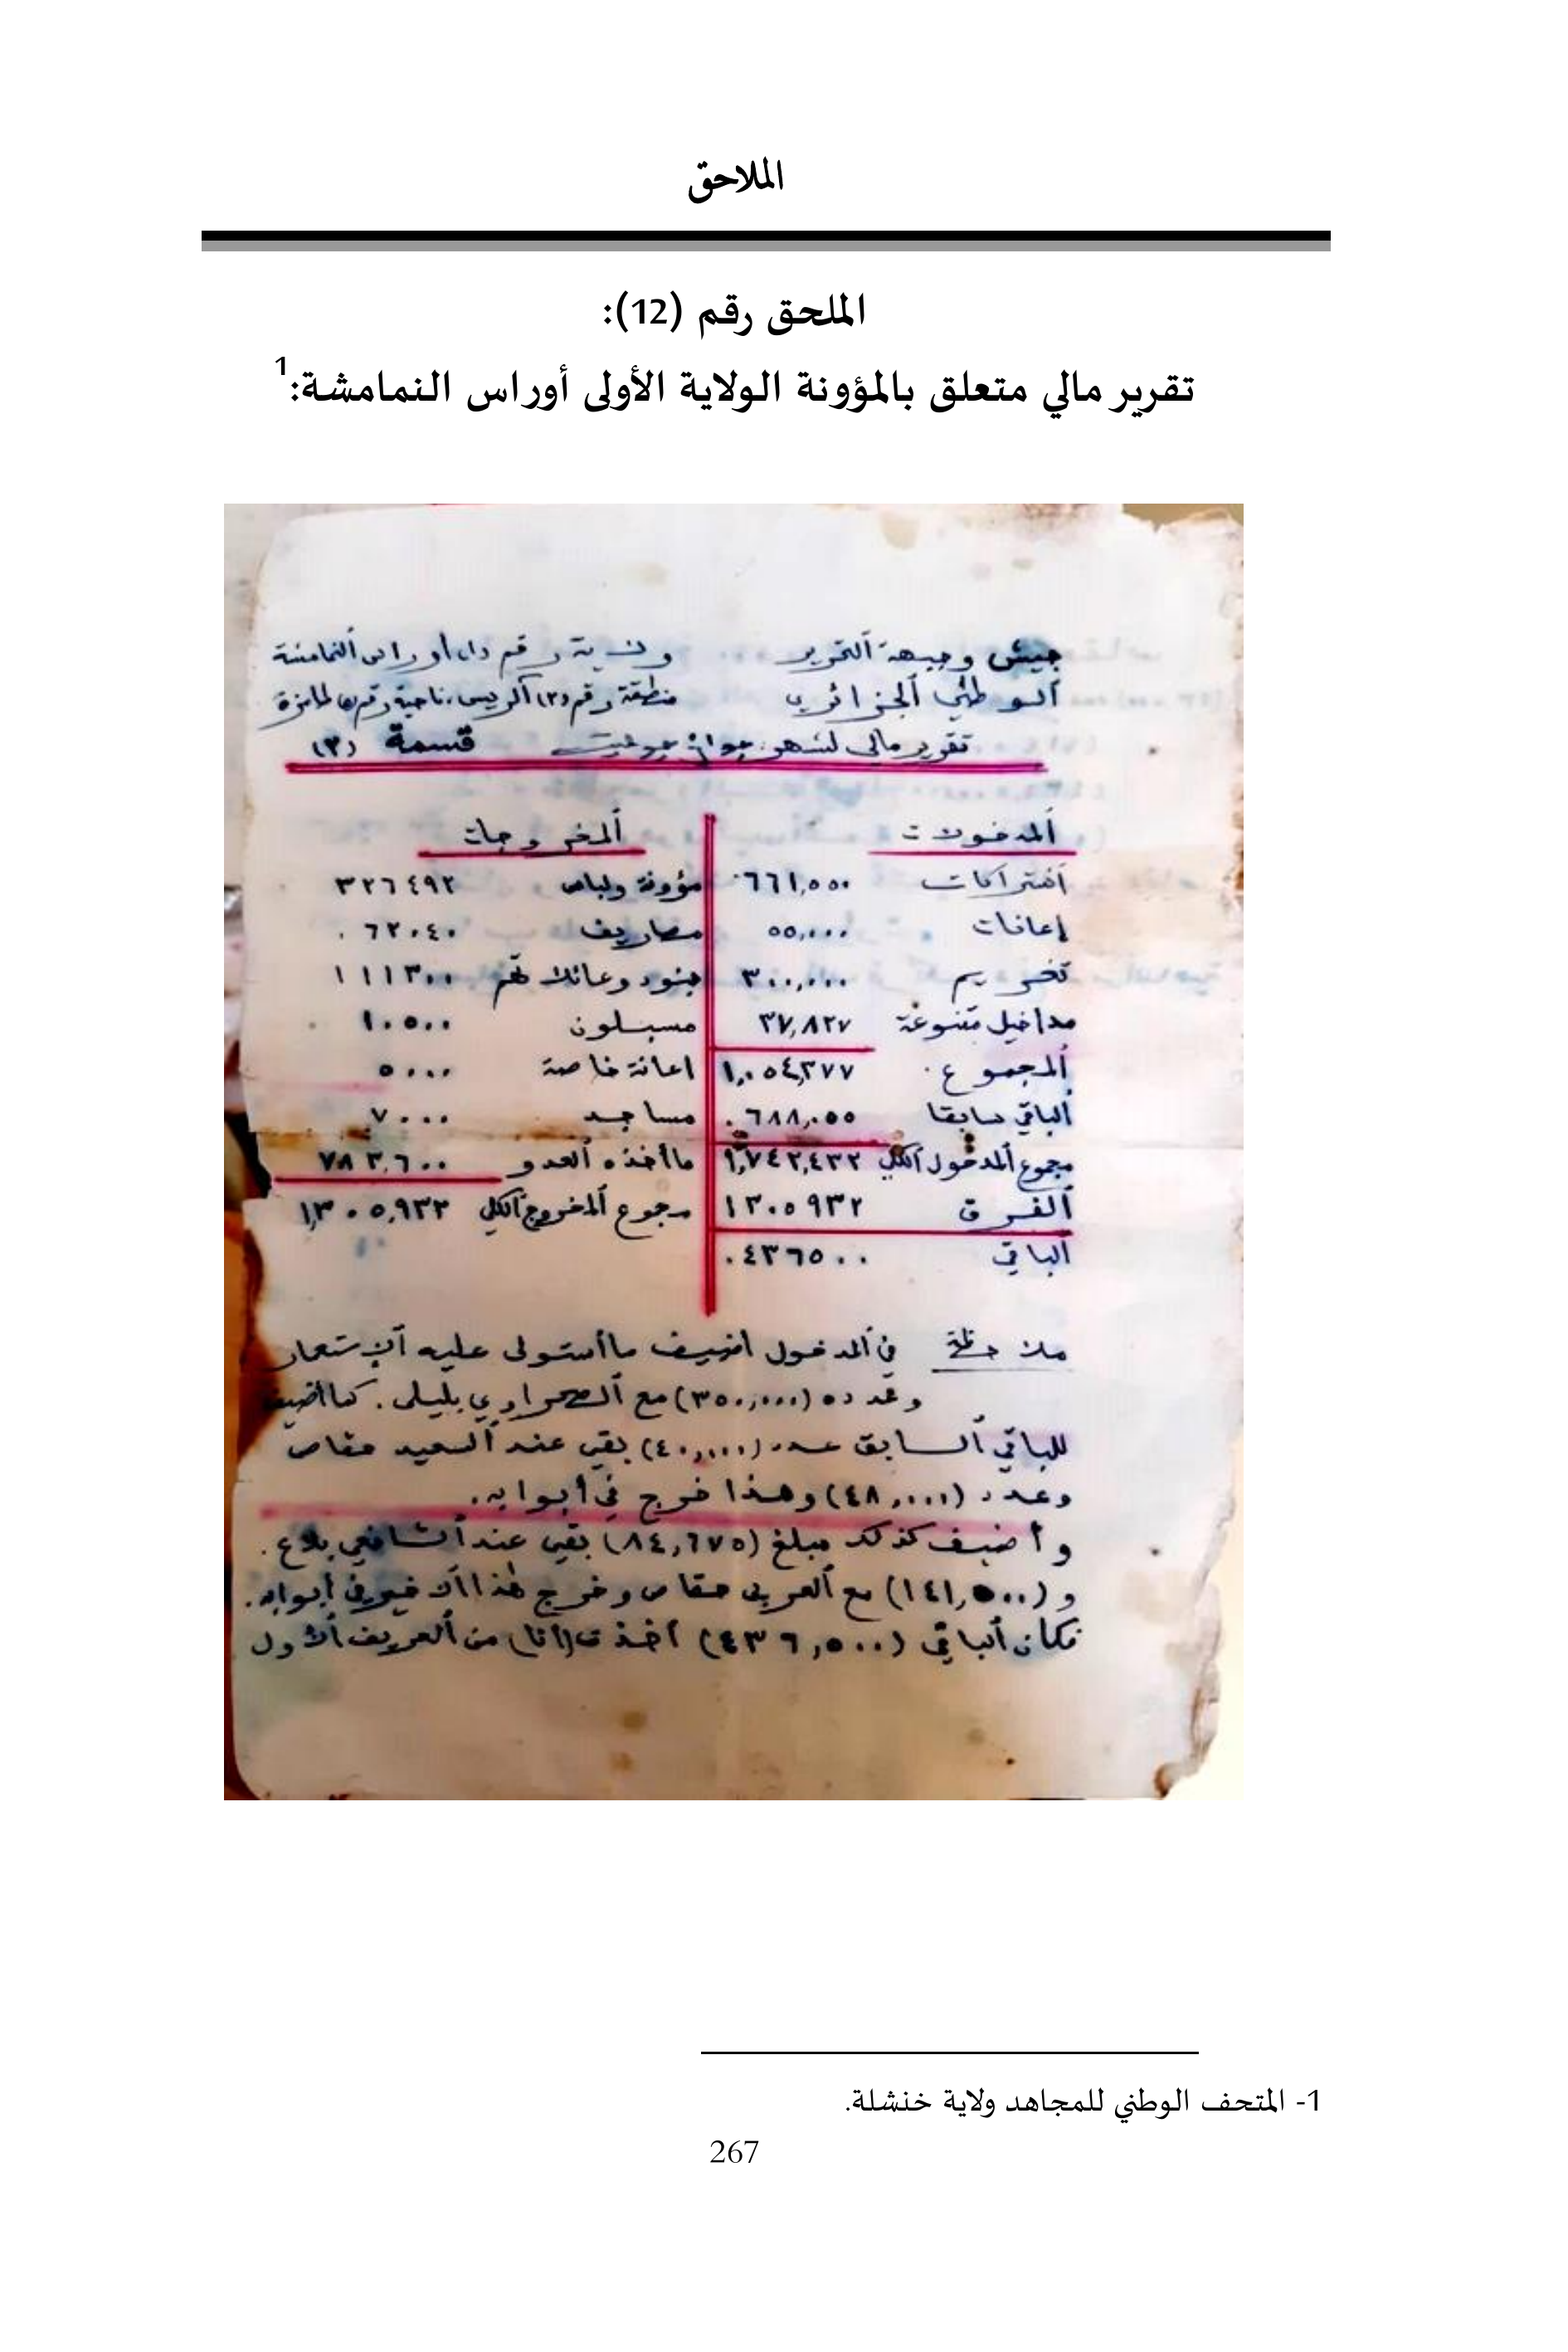 الملاحق
الملحق رقم (12):
تقرير مالي متعلق بالمؤونة الولاية الأولى أوراس النمامشة:1
جيش وجبهة ٱلتحرير ولاية رقم (١) أوراس ٱلنمامشة
ٱلوطني ٱلجزائري منطقة رقم (٢) ٱلريس، ناحية رقم
تقرير مالي لشهر: جوان جويليت قسمة (٣)
ٱلمدخولات ٱلمخروجات
اشتراكات ٦٦١,٥٥٠ مؤونة ولباس ٣٢٦٤٩٢
إعانات ٥٥,٠٠٠ مصاريف ٦٢٠٤٠
تغريم ٣٠٠,٠٠٠ جنود وعائلاتهم ١١١٣٠٠
مداخيل متنوعة ٣٧,٨٢٧ مسبلون ١٠٥٠٠
ٱلمجموع ١,٠٥٤,٣٧٧ اعانة خاصة ٥٠٠٠
ٱلباقي سابقا ٦٨٨,٠٥٥ مساجد ٧٠٠٠
مجموع ٱلمدخول ٱلكلي ١,٧٤٢,٤٣٢ ماأخذه ٱلعدو ٧٨٣,٦٠٠
ٱلفرق ١٣٠٥٩٣٢ مجموع ٱلمخروج ٱلكلي ١,٣٠٥,٩٣٢
ٱلباقي ٤٣٦٥٠٠
ملاحظة في ٱلمدخول اضيف ماأستولى عليه ٱلإستعمار
وعدده (٣٥٠,٠٠٠) مع ٱلصحراوي بليلى. كماأضيف
للباقي ٱلسابق عدد (٤٠,٠٠٠) بقي عند ٱلسعيد مقاص
وعدد (٤٨,٠٠٠) وهذا خرج في أبوابه.
وأضيف كذلك مبلغ (٨٤,٦٧٥) بقي عند ٱلشافعي بلاع.
و(١٤١,٥٠٠) مع ٱلعربي مقاص وخرج هذا ٱلاخير في أبوابه.
فكان ٱلباقي (٤٣٦,٥٠٠) أخذت (أنا) من ٱلعريف ٱلأول
1- المتحف الوطني للمجاهد ولاية خنشلة.
267